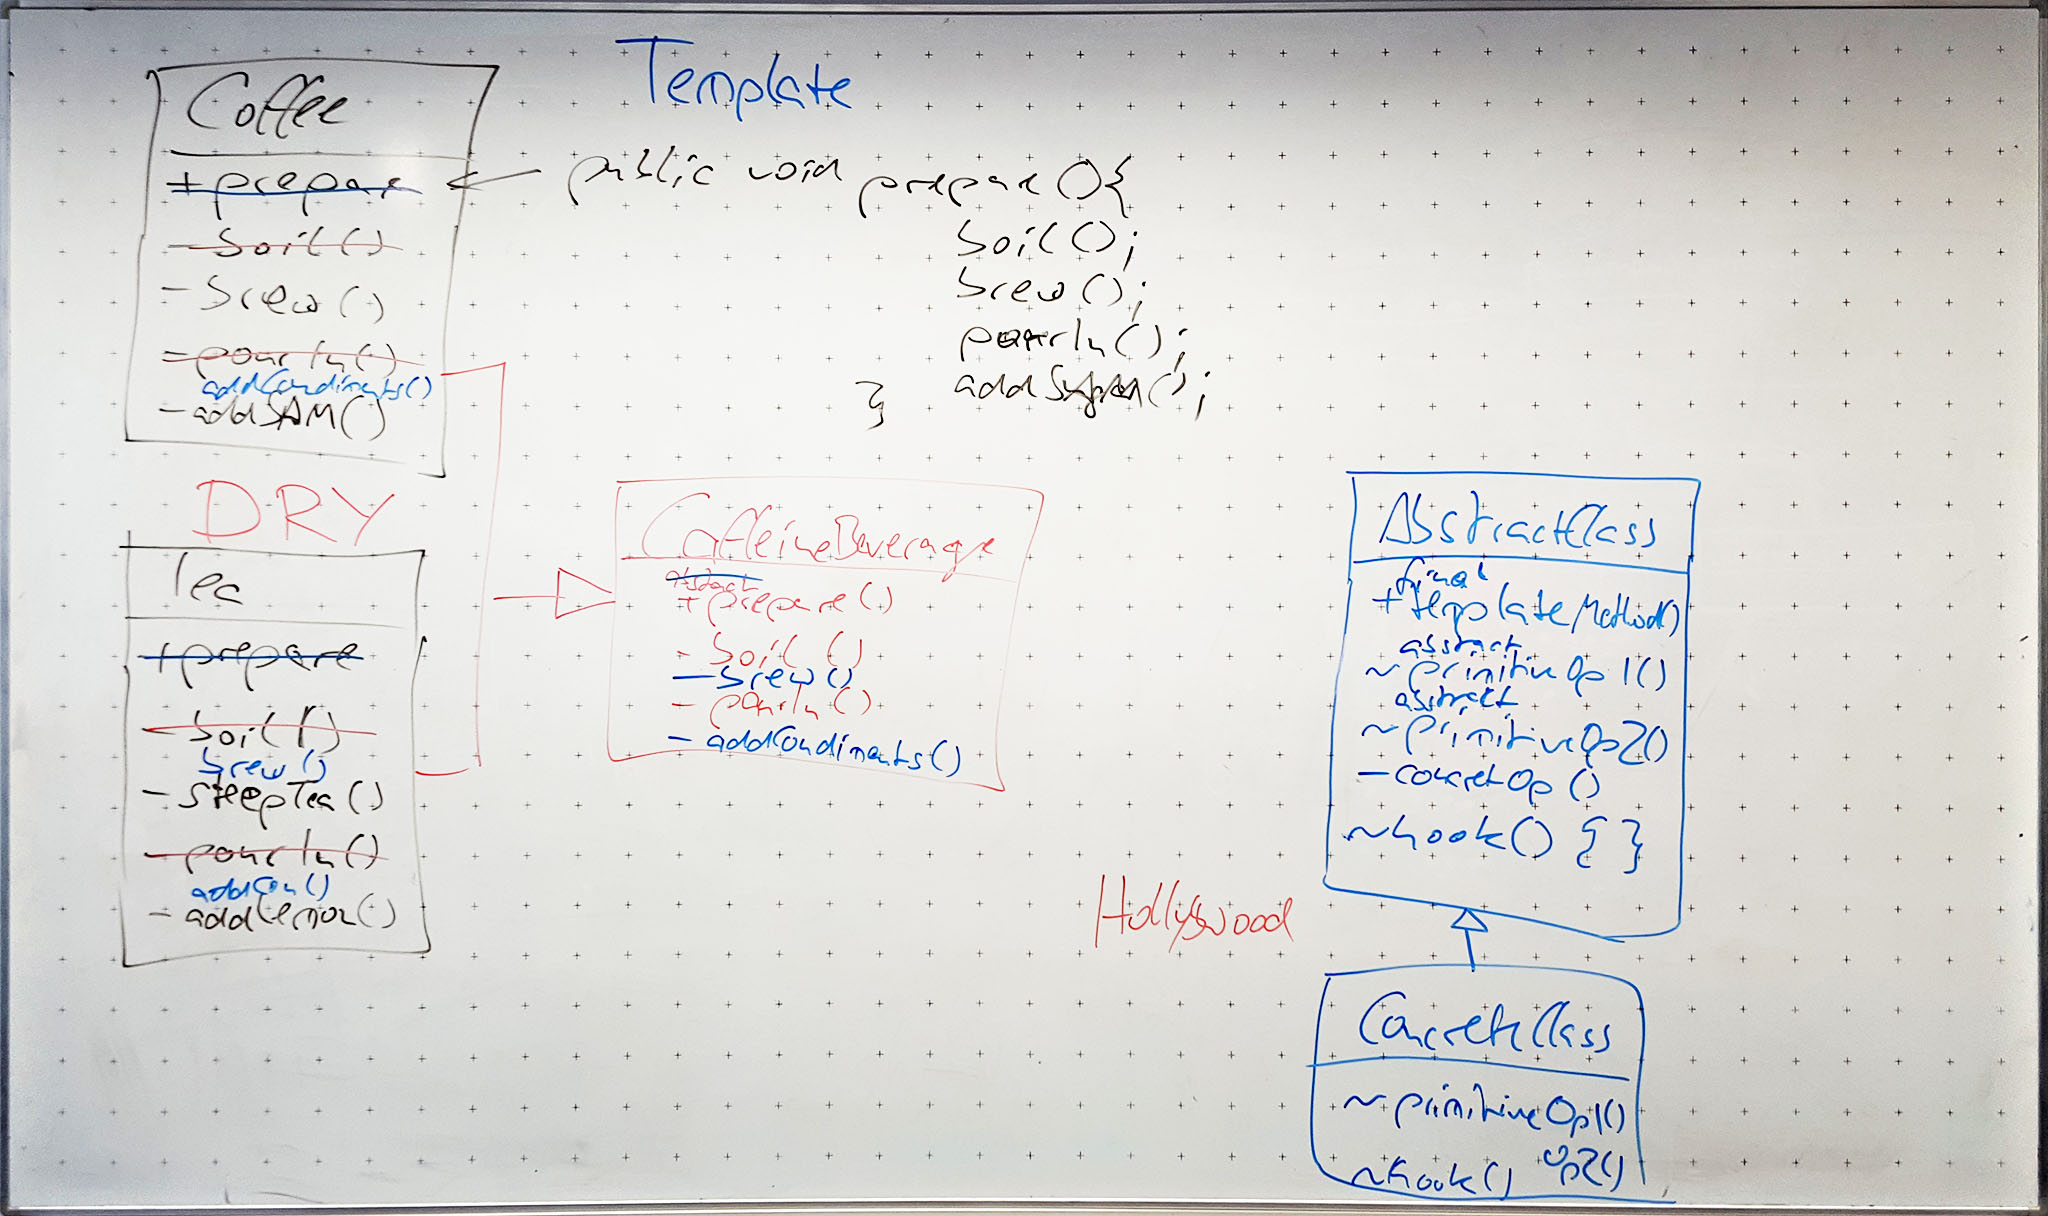 Template
Coffee
+prepare
-boil()
-brew()
-pourIn()
addCondiments()
-addSAM()
public void prepare(){
boil();
brew();
pourIn();
}
DRY
Tea
+prepare
-boil()
brew()
-steepTea()
-pourIn()
addCon()
-addLemon()
CaffeineBeverage
abstract
+prepare()
-boil()
-brew()
-pourIn()
-addCondiments()
Hollywood
AbstractClass
final
+templateMethod()
abstract
~primitiveOp1()
abstract
~primitiveOp2()
-concretOp()
~hook() { }
ConcreteClass
~primitiveOp1()
Op2()
~hook()